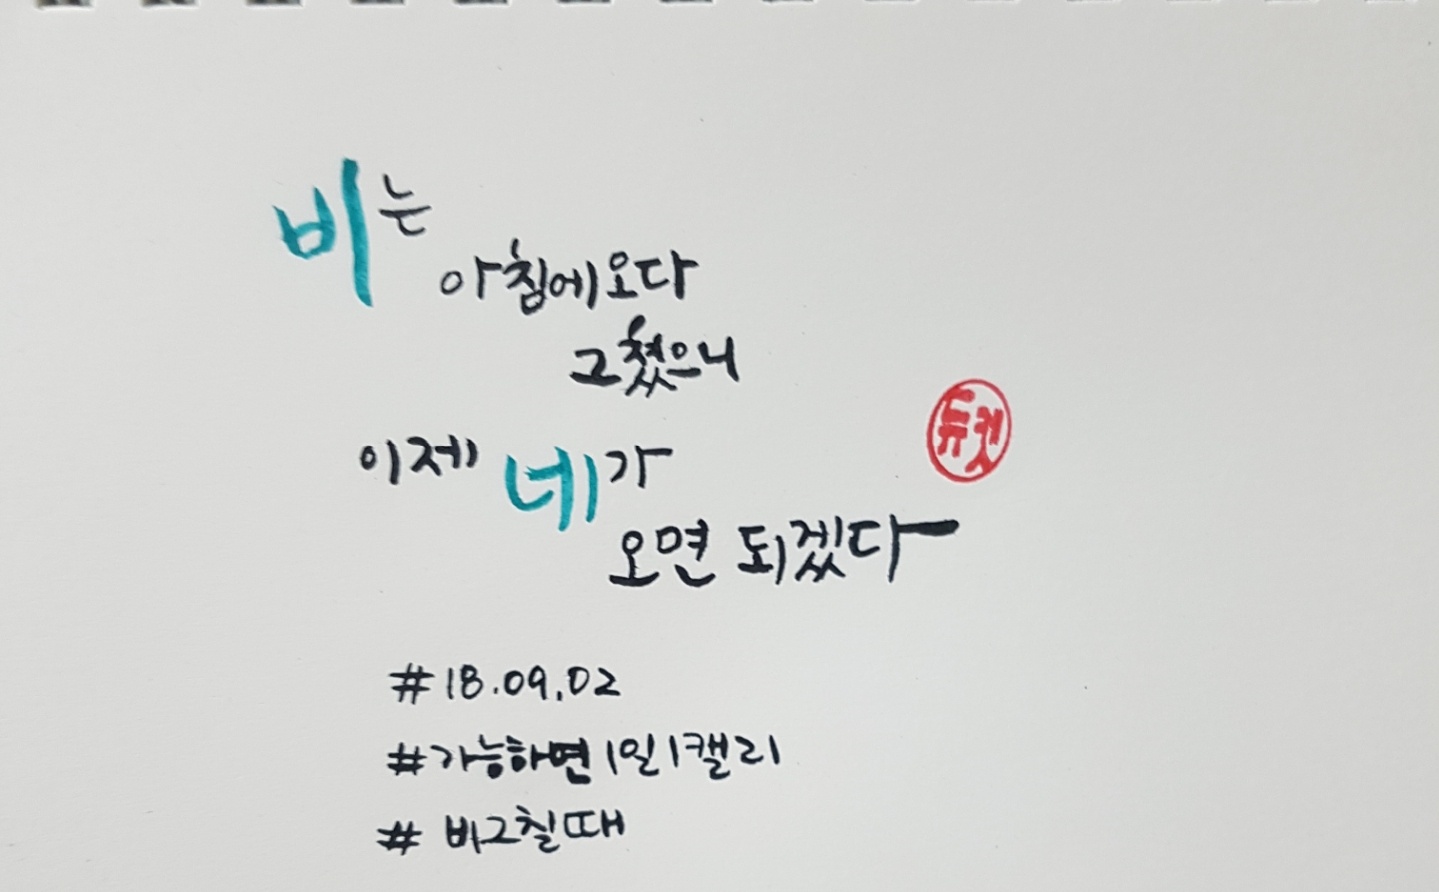 비는
아침에오다
그쳤으니
이제 네가
오면 되겠다
듀킷
#18.09.02
#가능하면1일1캘리
# 비그칠때